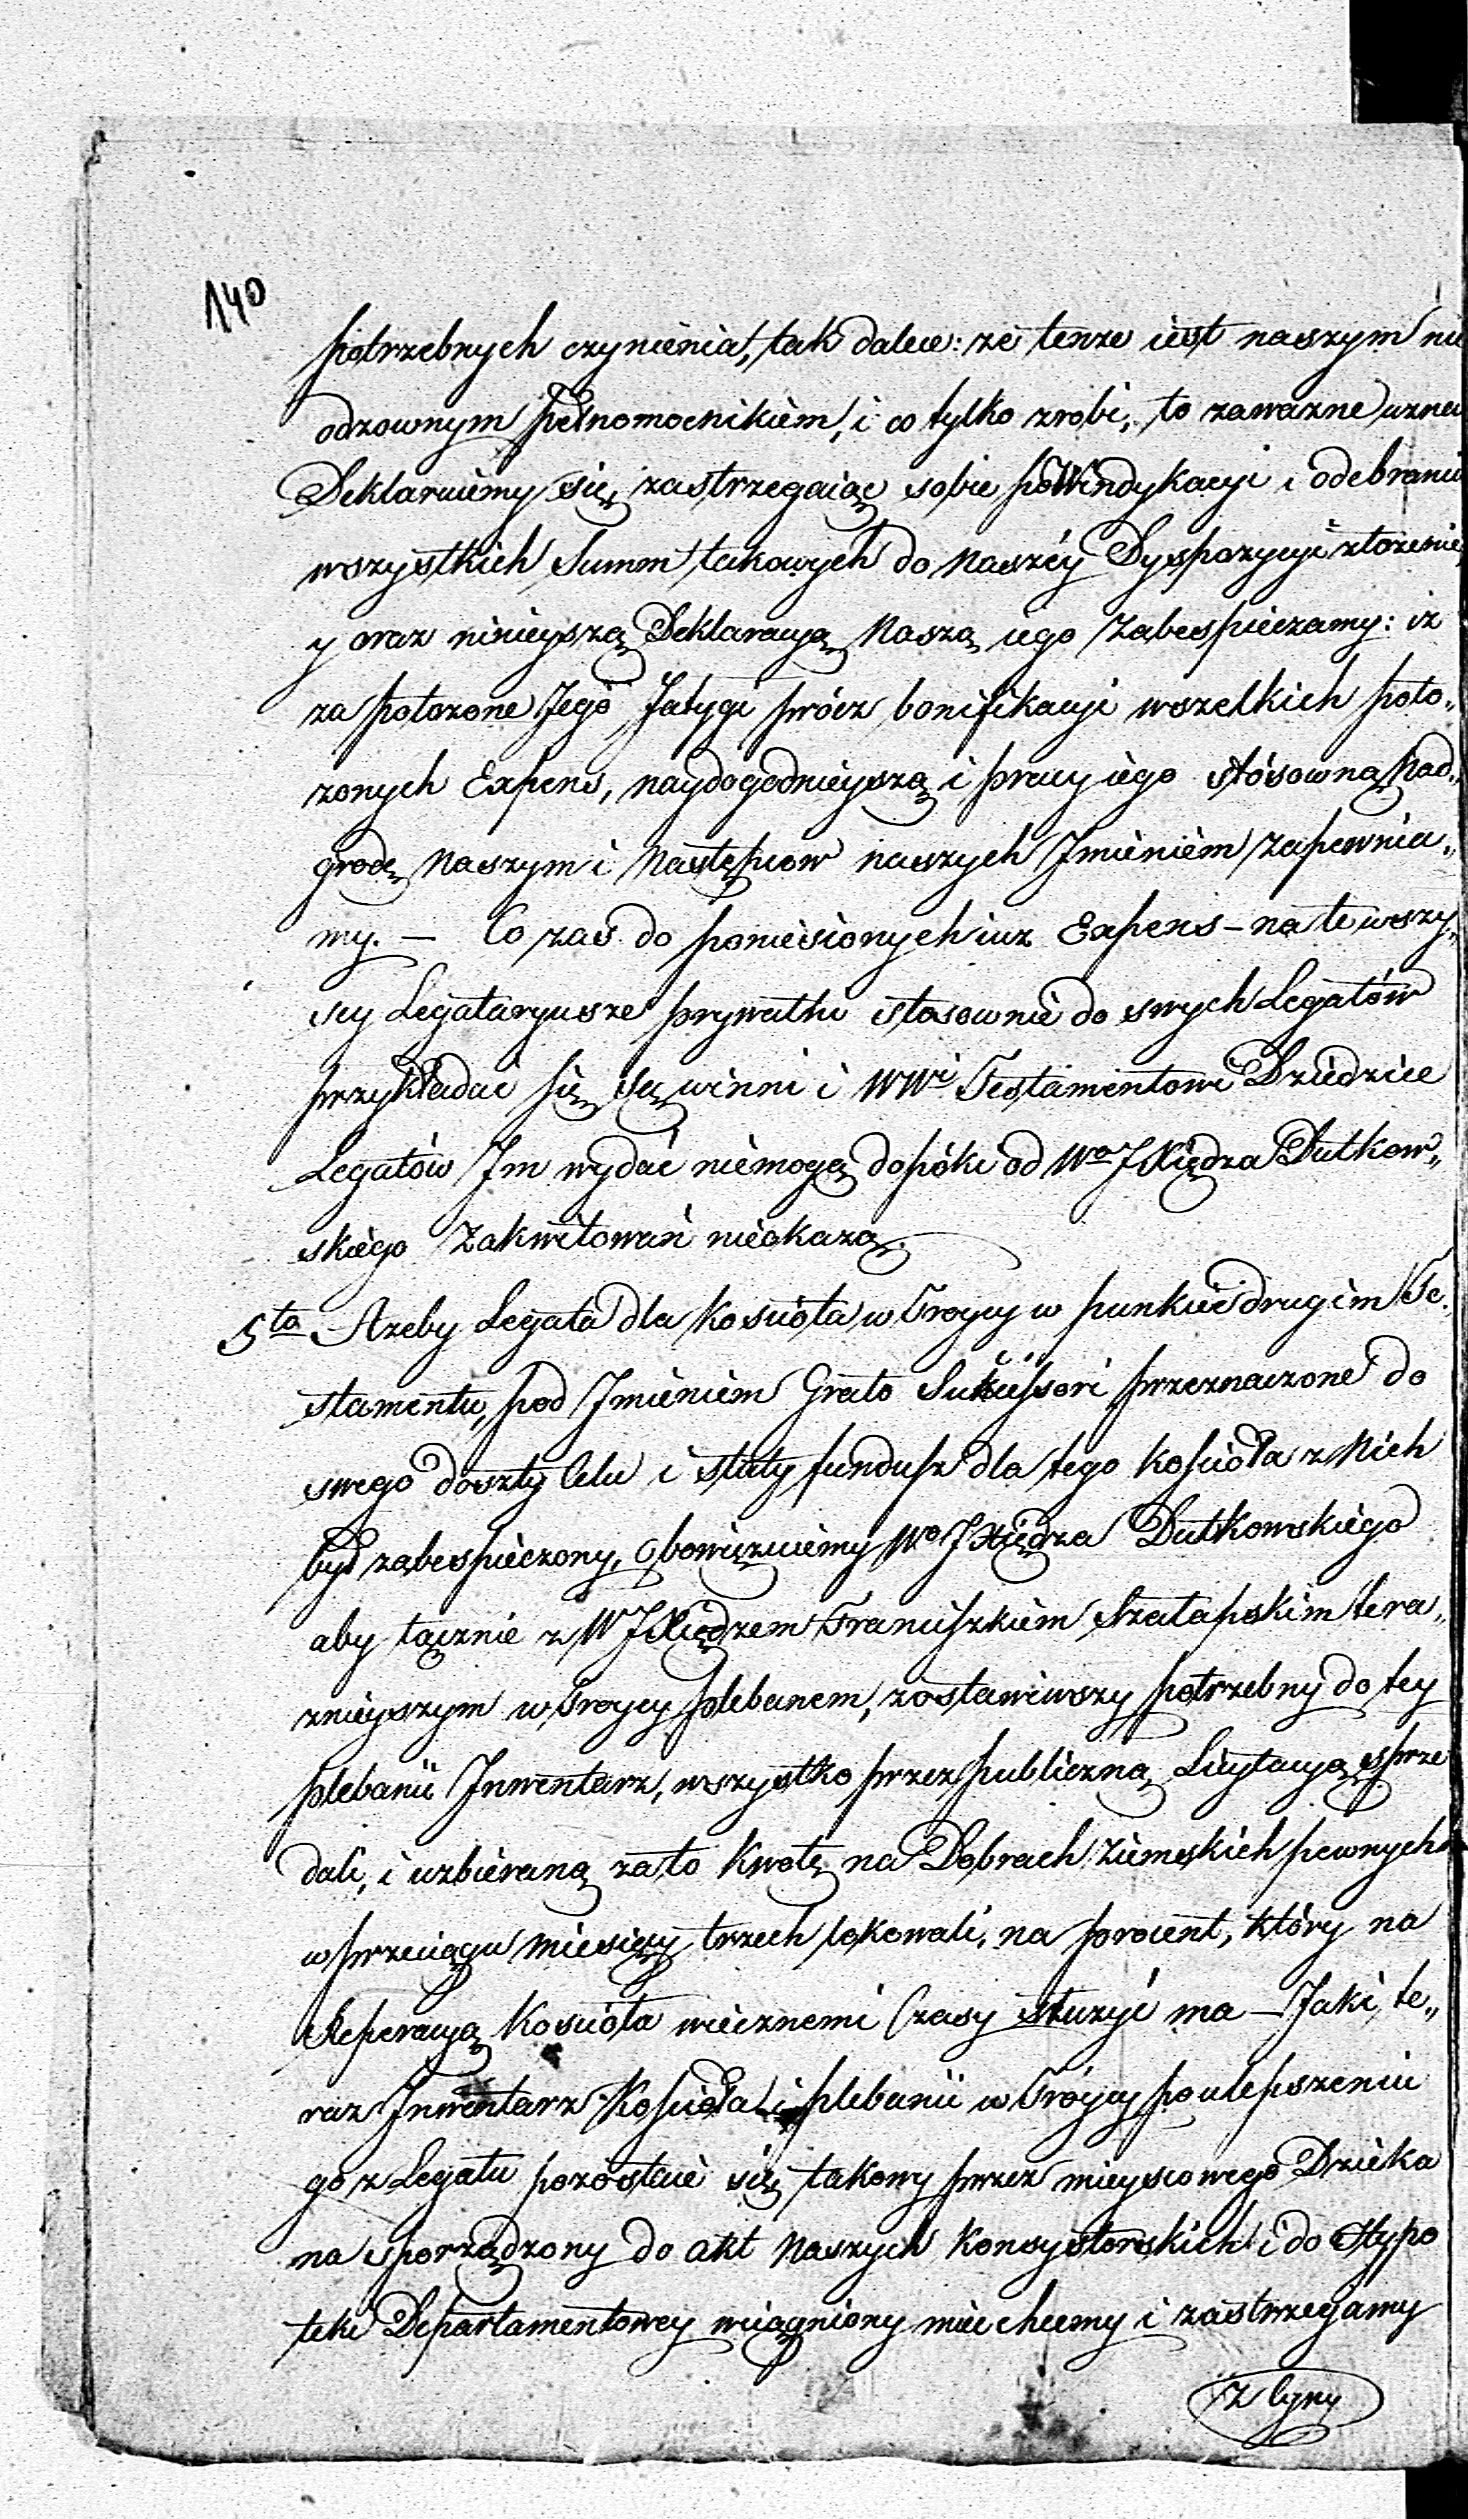 140
potrzebnych czynienia, tak dalece: że tenże iest naszym nie
odzownym pełnomocnikiem, i co tylko zrobi, to zaważne uznać
Deklaruiemy się, zastrzegaiąc sobie po Windykacyi i odebraniu
wszystkich Summ takowych do Naszéy Dyspozycyi złożenie,
y oraz ninieyszą Deklaracyą Naszą iego Zabespieczamy: iż
za położone Jego fatygi prócz bonifikacyi wszelkich poło„
żonych Expens, naydogodnieyszą i pracy iego stósowną Nad„
grodę Naszym i Następców naszych Imieniem zapewnia„
my. — Co zaś do poniesionych iuż Expens – na te wszy„
scy Legataryusze prywatni stosownie do swych Legatów
przykładać się są winni i WWi Testamentowi Dziedzice
Legatów Im wydać niemogą dopóki od Wo JXiędza Dutkow„
skiego Zakwitowań nieokażą.
5to Ażeby Legata dla Kościoła w Troycy w punkcie drugim Te„
stamentu, pod Imieniem Grato Sukcessori przeznaczone do
swego doszły Celu i stały fundusz dla tego Kościoła z Nich
był zabespieczony, obowiązuiemy Wo JXiędza Dutkowskiego
aby łącznie z W JXiędzem Franciszkiem Szałapskim tera„
znieyszym w Troycy plebanem, zostawiwszy potrzebny do tey
plebanii Inwentarz, wszystko przez publiczną Licytacyą sprze
dali, i uzbieraną zato Kwotę na Dobrach Ziemskich pewnych
w przeciągu miesięcy trzech lokowali, na procent, który na
Reperacyą Kościoła wiecznemi Czasy służyć ma — Jaki te„
raz Inwentarz Kościoła i plebanii w Tróycy po ulepszeniu
go z Legatu pozostaie się takowy przez mieyscowego Dzieka
na sporządzony do Akt Naszych Konsystorskich i do Hypo
teki Departamentowey wciągniony mieć chcemy i zastrzegamy